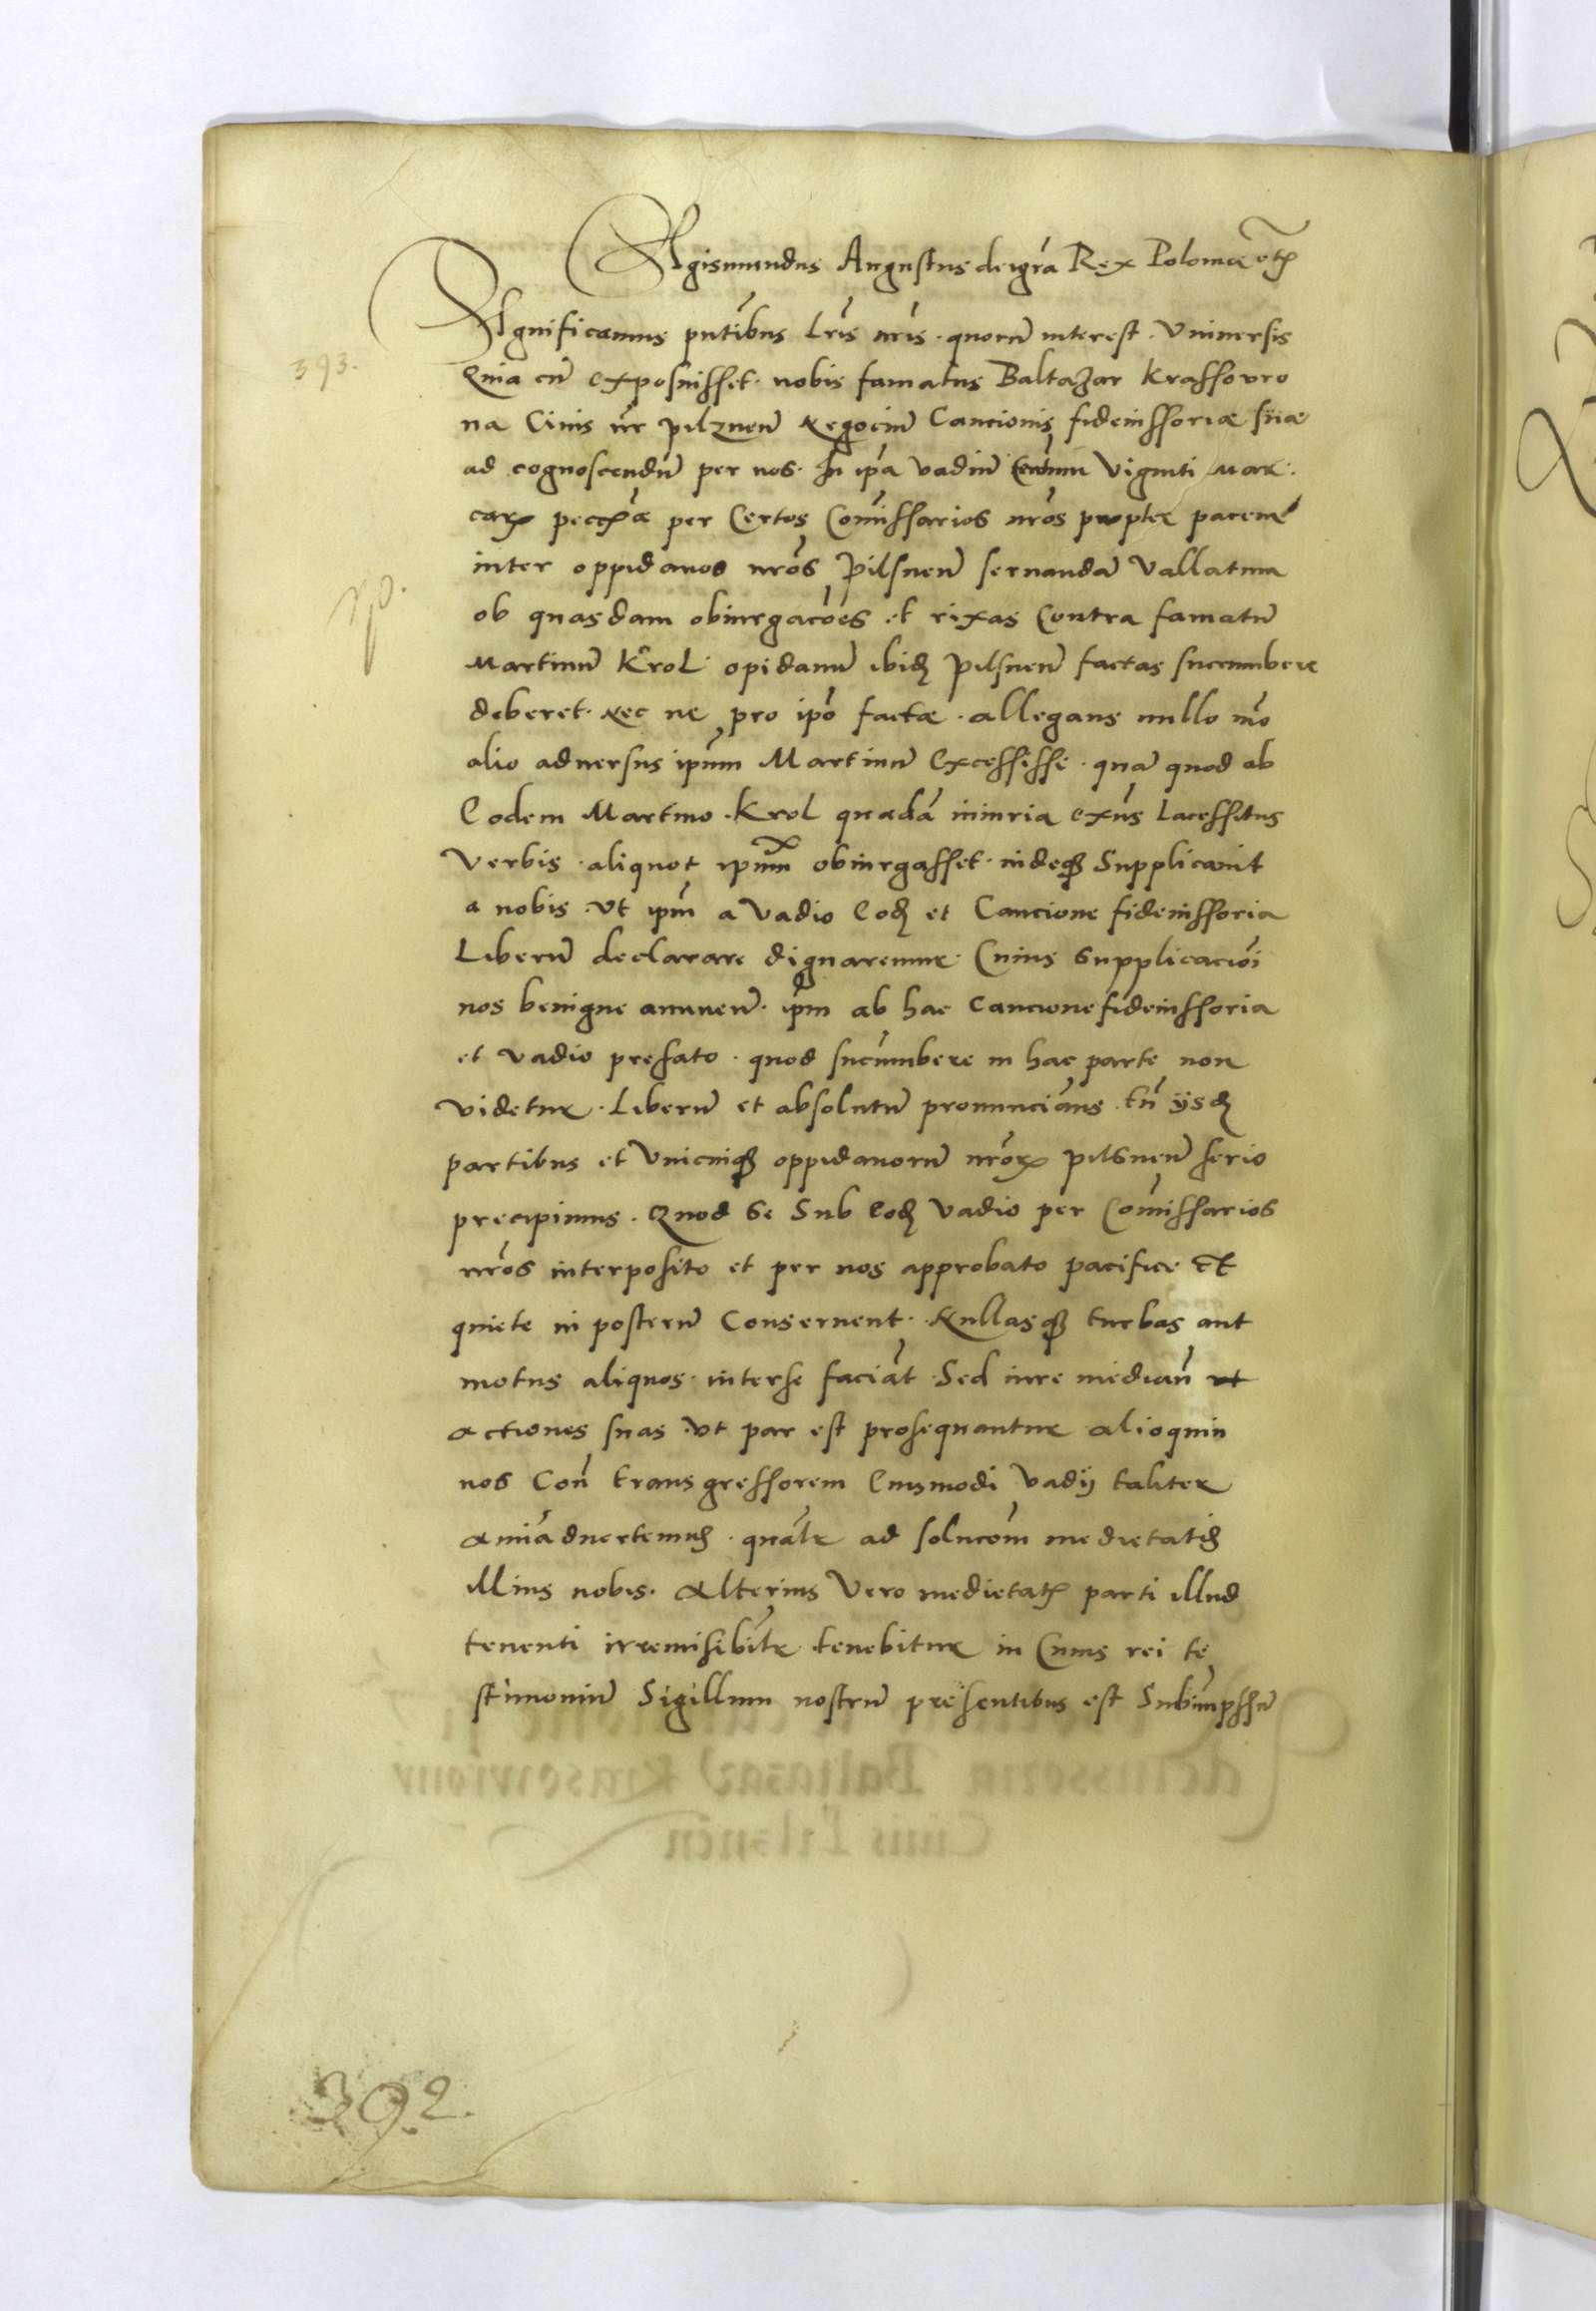 Sigismundus Augustus dei gr̃a Rex Poloniæ etc̃
Significamus pn̄tibus Lr̄is nr̄is · quorū interest · Vniuersis
393.
Quia cū exposuisset · nobis famatus Baltazar Krassowro
na Ciuis nr̄ pilznen̄ Negociū Caucionis fideiussoriæ suæ
ad cognoscendū per nos · In ip̄a vadiū Centum Viginti Mar
carꝝ pecc͂a per Certos Com̄issarios nr̄os propter pacem
inter oppidanos nr̄os Pilsnen̄ seruandā Vallatum
ob quasdam obiurgacōes et rixas Contra famatū
Martinū Krol opidanū ibid̄ Pilsnen̄ factas succumbere
deberet · Nec ne pro ip̄o factæ · allegans nullo mō
alio aduersus ip̄um Martinū Excessisse · quā quod ab
Eodem Martino · Krol quadā iniuria exn̄s Lacessitus
Verbis · aliquot ip̄um obiurgasset · indeqꝫ Supplicauit
a nobis · vt ip̄m a Vadio Eod̄ et Caucione fideiussoria
Liberū declarare dignaremur · Cuius Supplicacioī
nos benigne annuen̄ · ip̄m ab hac Caucione fideiussoria
et Vadio prefato · quod sucūmbere in hac parte non
videtur · Liberū et absolutū pronunciām̄s · tn̄ ijsd̄
partibus et Vnicuiqꝫ oppidanorū nr̄orꝝ pilsnen̄ serio
precipimus · Quod Se Sub Eod̄ Vadio per Com̄issarios
nr̄os interposito et per nos approbato pacifice et
quiete in posterū Conseruent · Nullasqꝫ turbas aut
motus aliquos · inter se faciāt · Sed iure median̄ vt
actiones suas vt par est prosequantur alioquin
nos Con̄ transgressorem Eiusmodi Vadij taliter
animāduertemus · qualr̄ ad solucom̄ medietatis
illius nobis · Alterius Vero medietatꝭ parti illud
tenenti irremisibilr̄ tenebitur in Cuius rei te
stimoniū Sigillum nostrū presentibus est Subimp̄ssū
392.